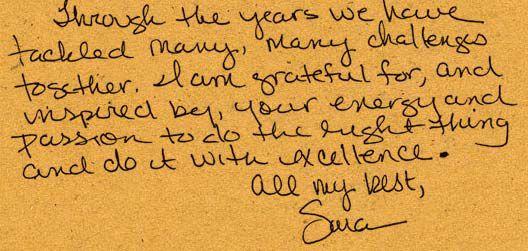 Through the years we have
tackled many, many challenges
together. I am grateful for, and
inspired by, your energy and
passion to do the right thing
and do it with excellence.
All my best,
Sara